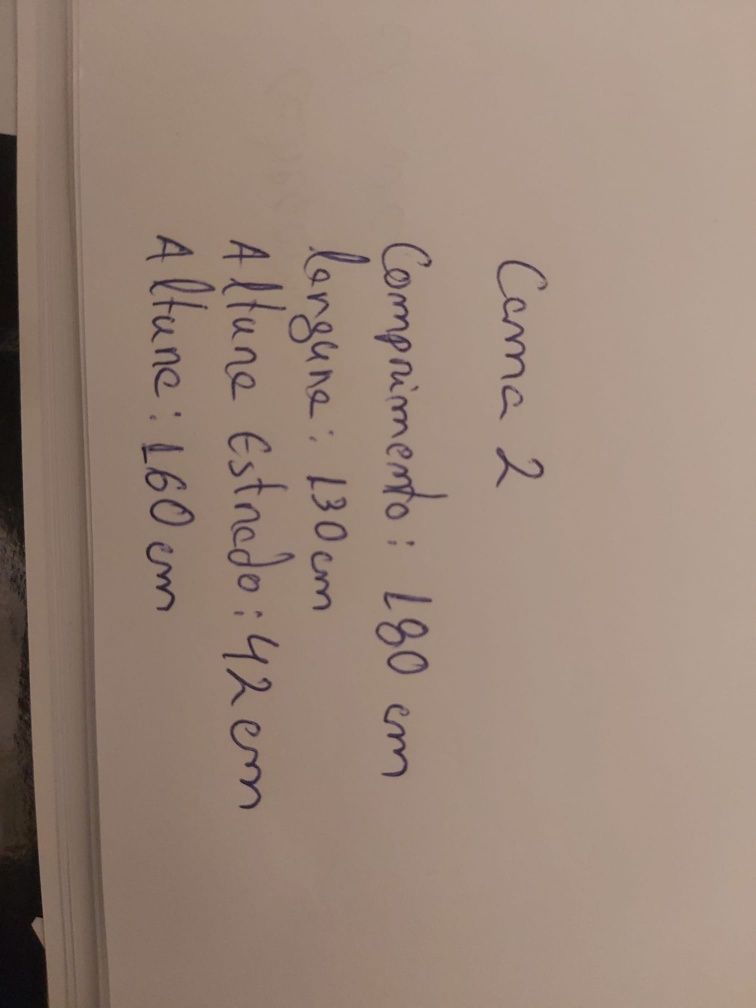 Cama 2
Comprimento: 180 cm
largura: 130cm
Altura Estrado: 42cm
Altura: 160cm